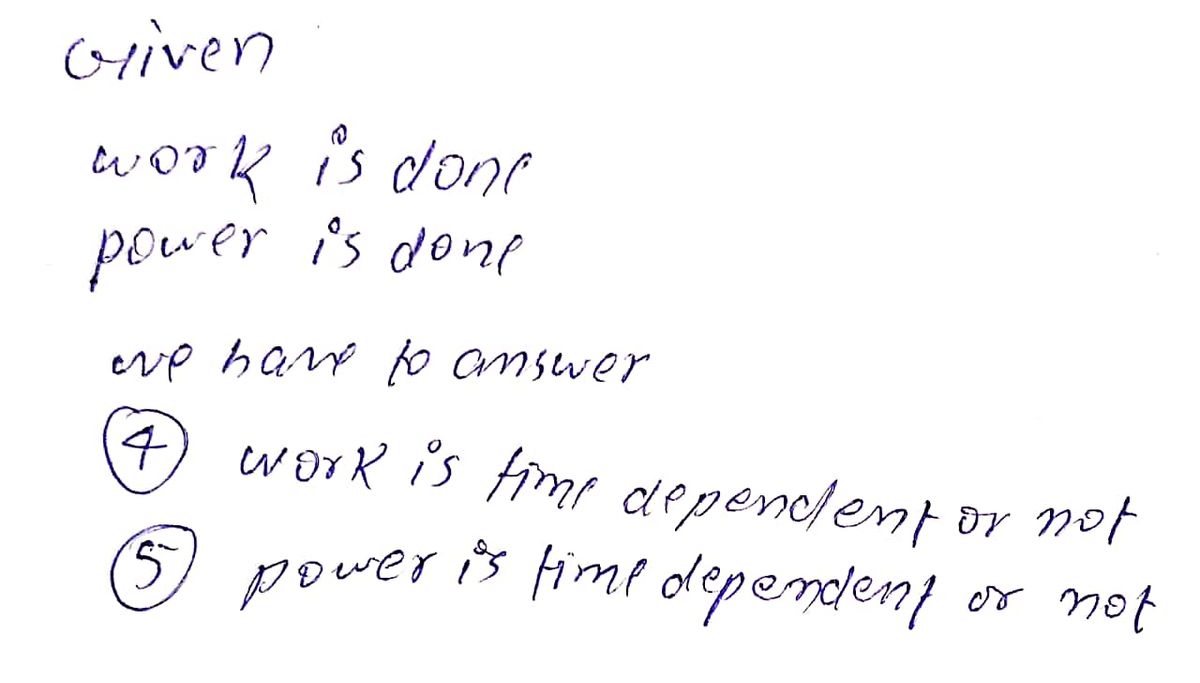 Given
work is done
power is done
we have to answer
④ work is time dependent or not
⑤ power is time dependent or not